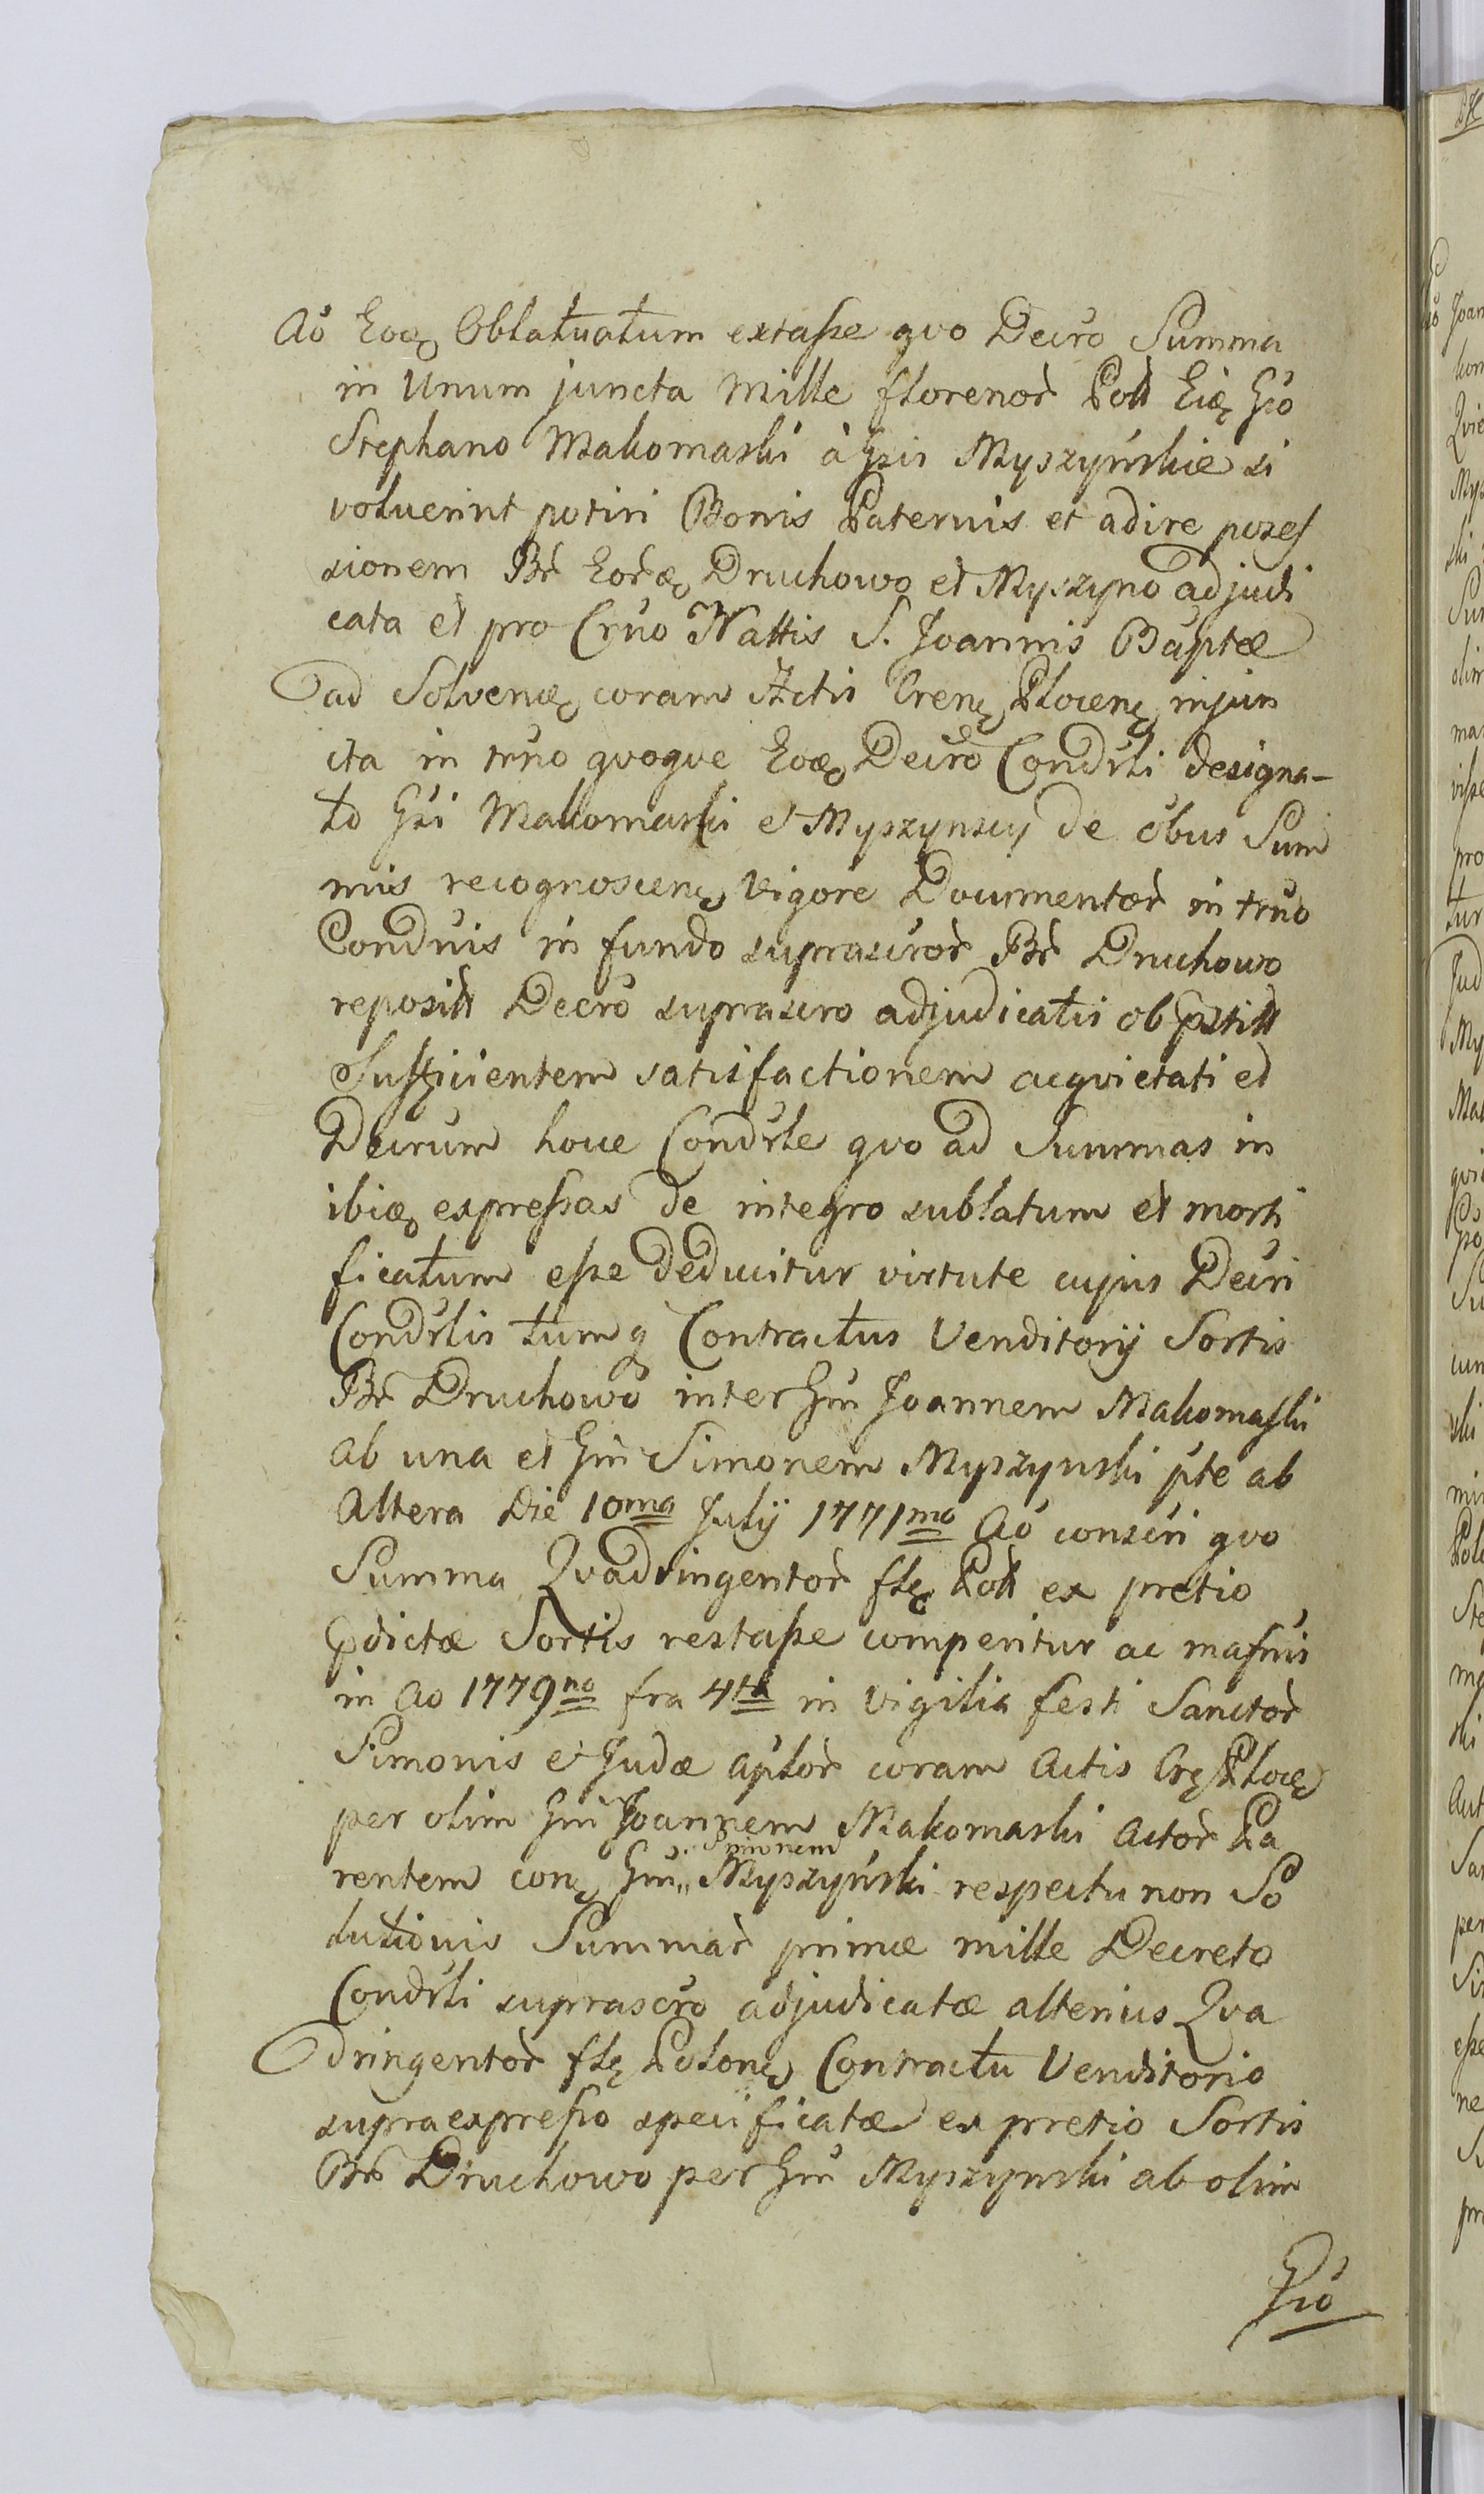 Aö Eoꝫ Oblatuatum extaße qvo Decro Summa
in Unum juncta Mille florenor Poll Eiꝫ Gso
Stephano Makomaski à Gsis Myszyńskie si
voluerint potiri Bonis Paternis et adire posses
sionem Br Eorꝫ Druchowo et Myszyno adjudi
cata et pro Crno Nattis S. Joannis Baptæ
ad Solvenꝫ coram Actis Crenꝫ Plocenꝫ injun
cta in trno qvoqve Eoꝫ Decro Condrli designa-
to Gsi Makomaski et Myszynscy de öbus Sum
mis recognoscenꝫ Vigore Documentor in trno
Condnis in fundo suprascror Br Druchowo
reposill Decro suprascro adjudicatis ob pstill
Sufficientem satisfactionem acqvietati et
Decrum hocce Condrle qvo ad Summas in
ibiꝫ expreßas de integro sublatum et morti
ficatum eße deducitur virtute cujus Decri
Condrlis tumqꝫ Contractus Venditorij Sortis
Br Druchowo inter Gsm Joannem Makomaski
ab una et Gsm Simonem Myszynski pte ab
Altera Die 10ma Julij 1771mo Aö conscri qvo
Summa Qvadringentor flꝫ Poll ex pretio
pdictæ Sortis restaße comperitur ac
in Ao 1779no fra 4ta in Vigilia festi Sanctor
Simonis et Judæ Aplor coram Actis Crꝫ Plocꝫ
per olim Gsm Joannem Makomaski Actor Pa
rentem conꝫ Gsm „ Simonem Myszyński respectu non So
lutionis Summar primæ mille Decreto
Condrli suprascro adjudicatæ alterius Qva
dringentor flꝫ Polonꝫ Contractu Venditorio
supraexpreßo specificatæ ex pretio Sortis
Br Druchowo per Gsm Myszynski ab olim
Gso